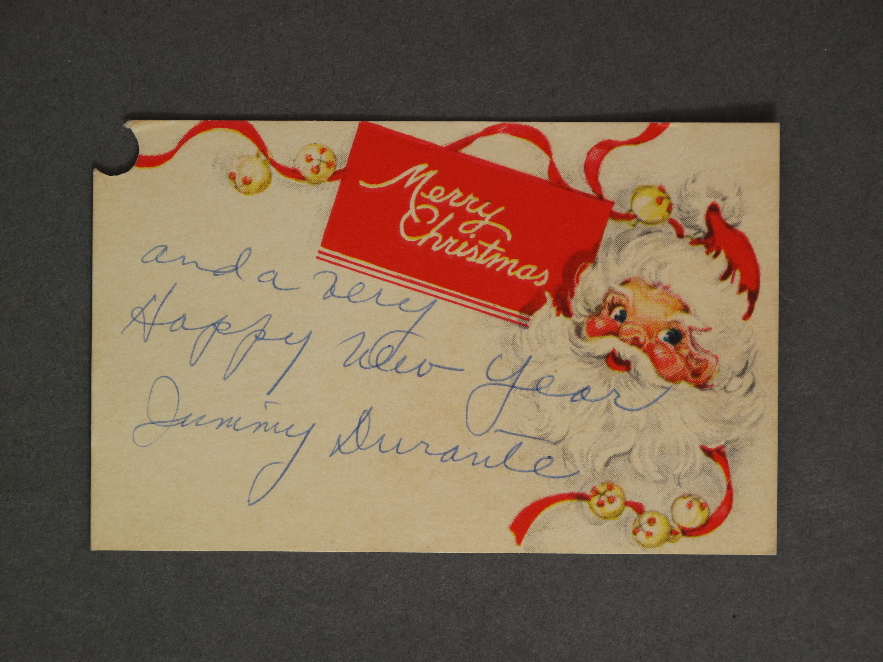 Merry
Christmas
and a very
Happy New Year
Jimmy Durante